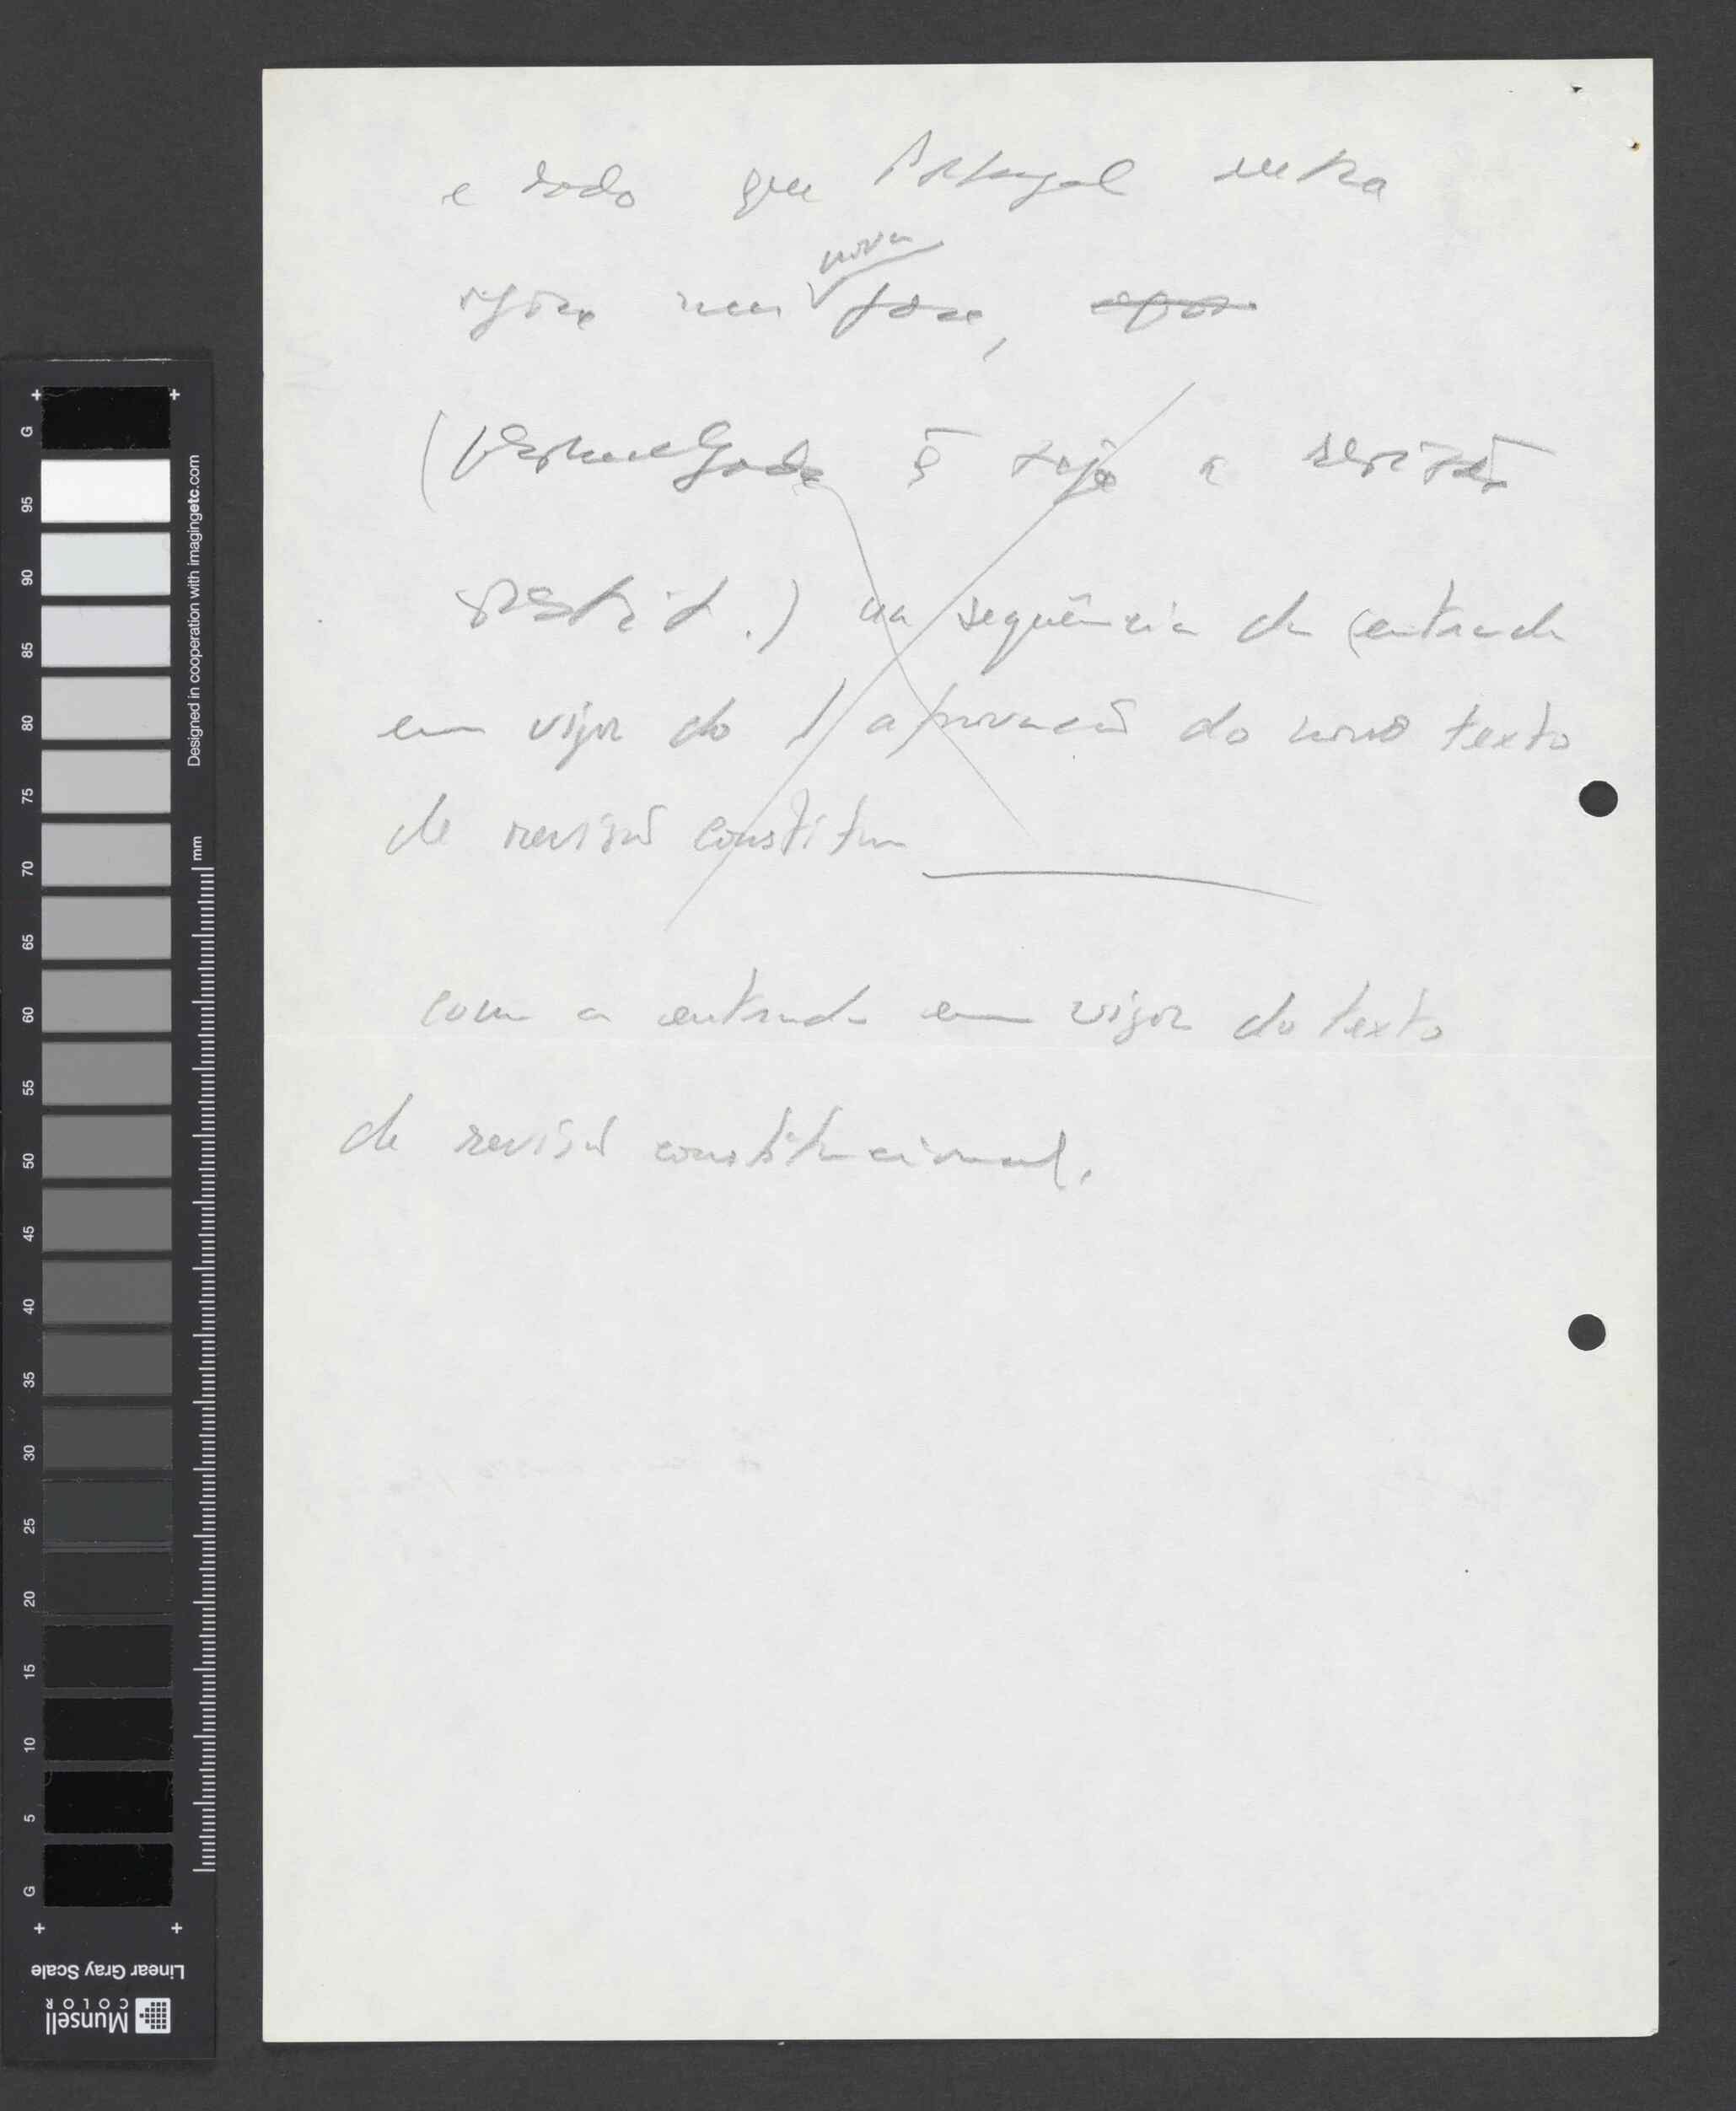 e dado que Portugal entra
nova
agora numa fase, agora
(promulgada q̄ seja a revisão
constit.) na sequência da (entrada
em vigor do / aprovação do novo texto
de revisão constitu
com a entrada em vigor do texto
de revisão constitucional.
G
95
90
85
80
75
70
65
60
55
50
45
40
35
30
25
20
15
10
5
G
mm
Designed in cooperation with imagingetc.com
Linear Gray Scale
Munsell
COLOR